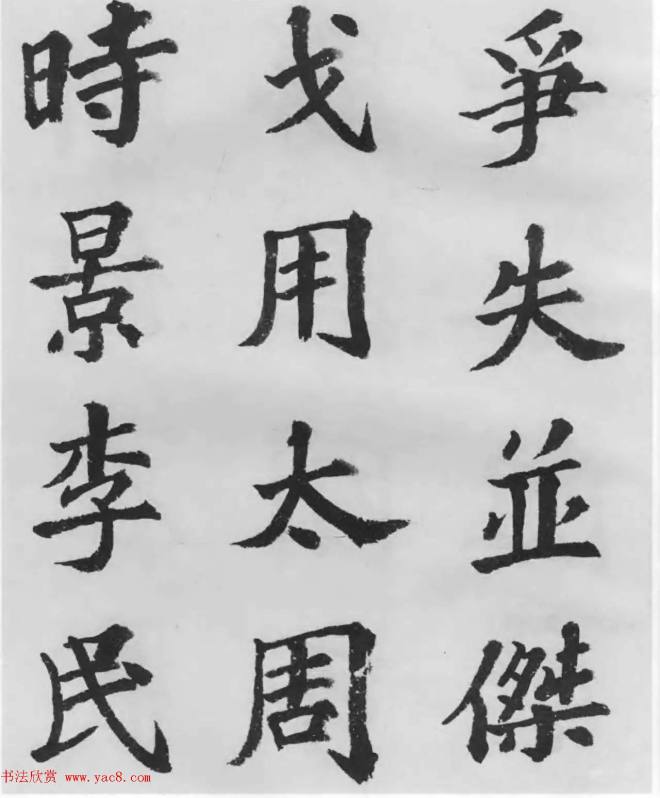 爭失並傑
戈用太周
時景李民
书法欣赏 www.yac8.com